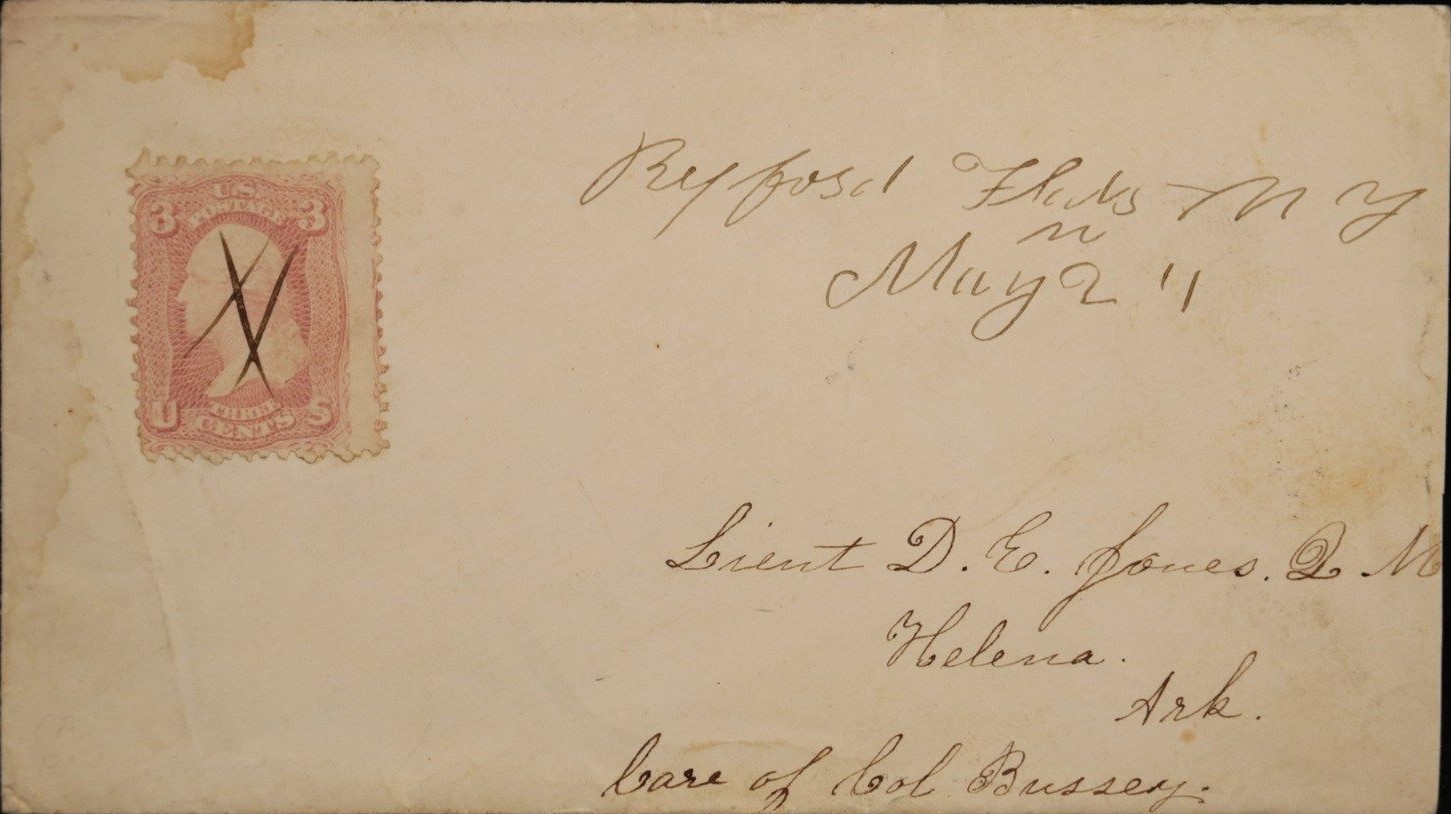 U.S.
POSTAGE
3 3
U S
THREE
CENTS
Rexford Flats N Y
May 2 "
Lieut D. E. Jones. Q M
Helena.
Ark.
Care of Col Bussey.